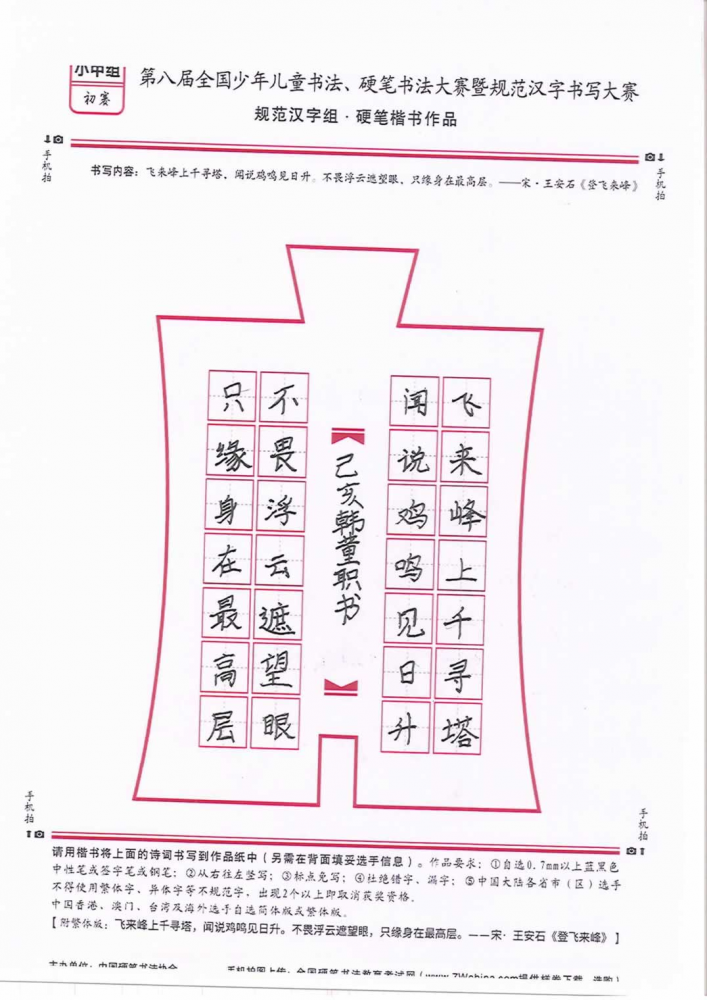 小中组
初赛
第八届全国少年儿童书法、硬笔书法大赛暨规范汉字书写大赛
规范汉字组·硬笔楷书作品
手机拍
手机拍
书写内容：飞来峰上千寻塔，闻说鸡鸣见日升。不畏浮云遮望眼，只缘身在最高层。——宋·王安石《登飞来峰》
飞来峰上千寻塔
闻说鸡鸣见日升
己亥韩童职书
不畏浮云遮望眼
只缘身在最高层
手机拍
手机拍
请用楷书将上面的诗词书写到作品纸中（另需在背面填妥选手信息）。作品要求：①自选0.7mm以上蓝黑色
中性笔或签字笔或钢笔；②从右往左竖写；③标点免写；④杜绝错字、漏字；⑤中国大陆各省市（区）选手
不得使用繁体字、异体字等不规范字，出现2个以上即取消获奖资格.
中国香港、澳门、台湾及海外选手自选简体版或繁体版.
【附繁体版：飞来峰上千寻塔，闻说鸡鸣见日升。不畏浮云遮望眼，只缘身在最高层。——宋·王安石《登飞来峰》】
主办单位：中国硬笔书法协会